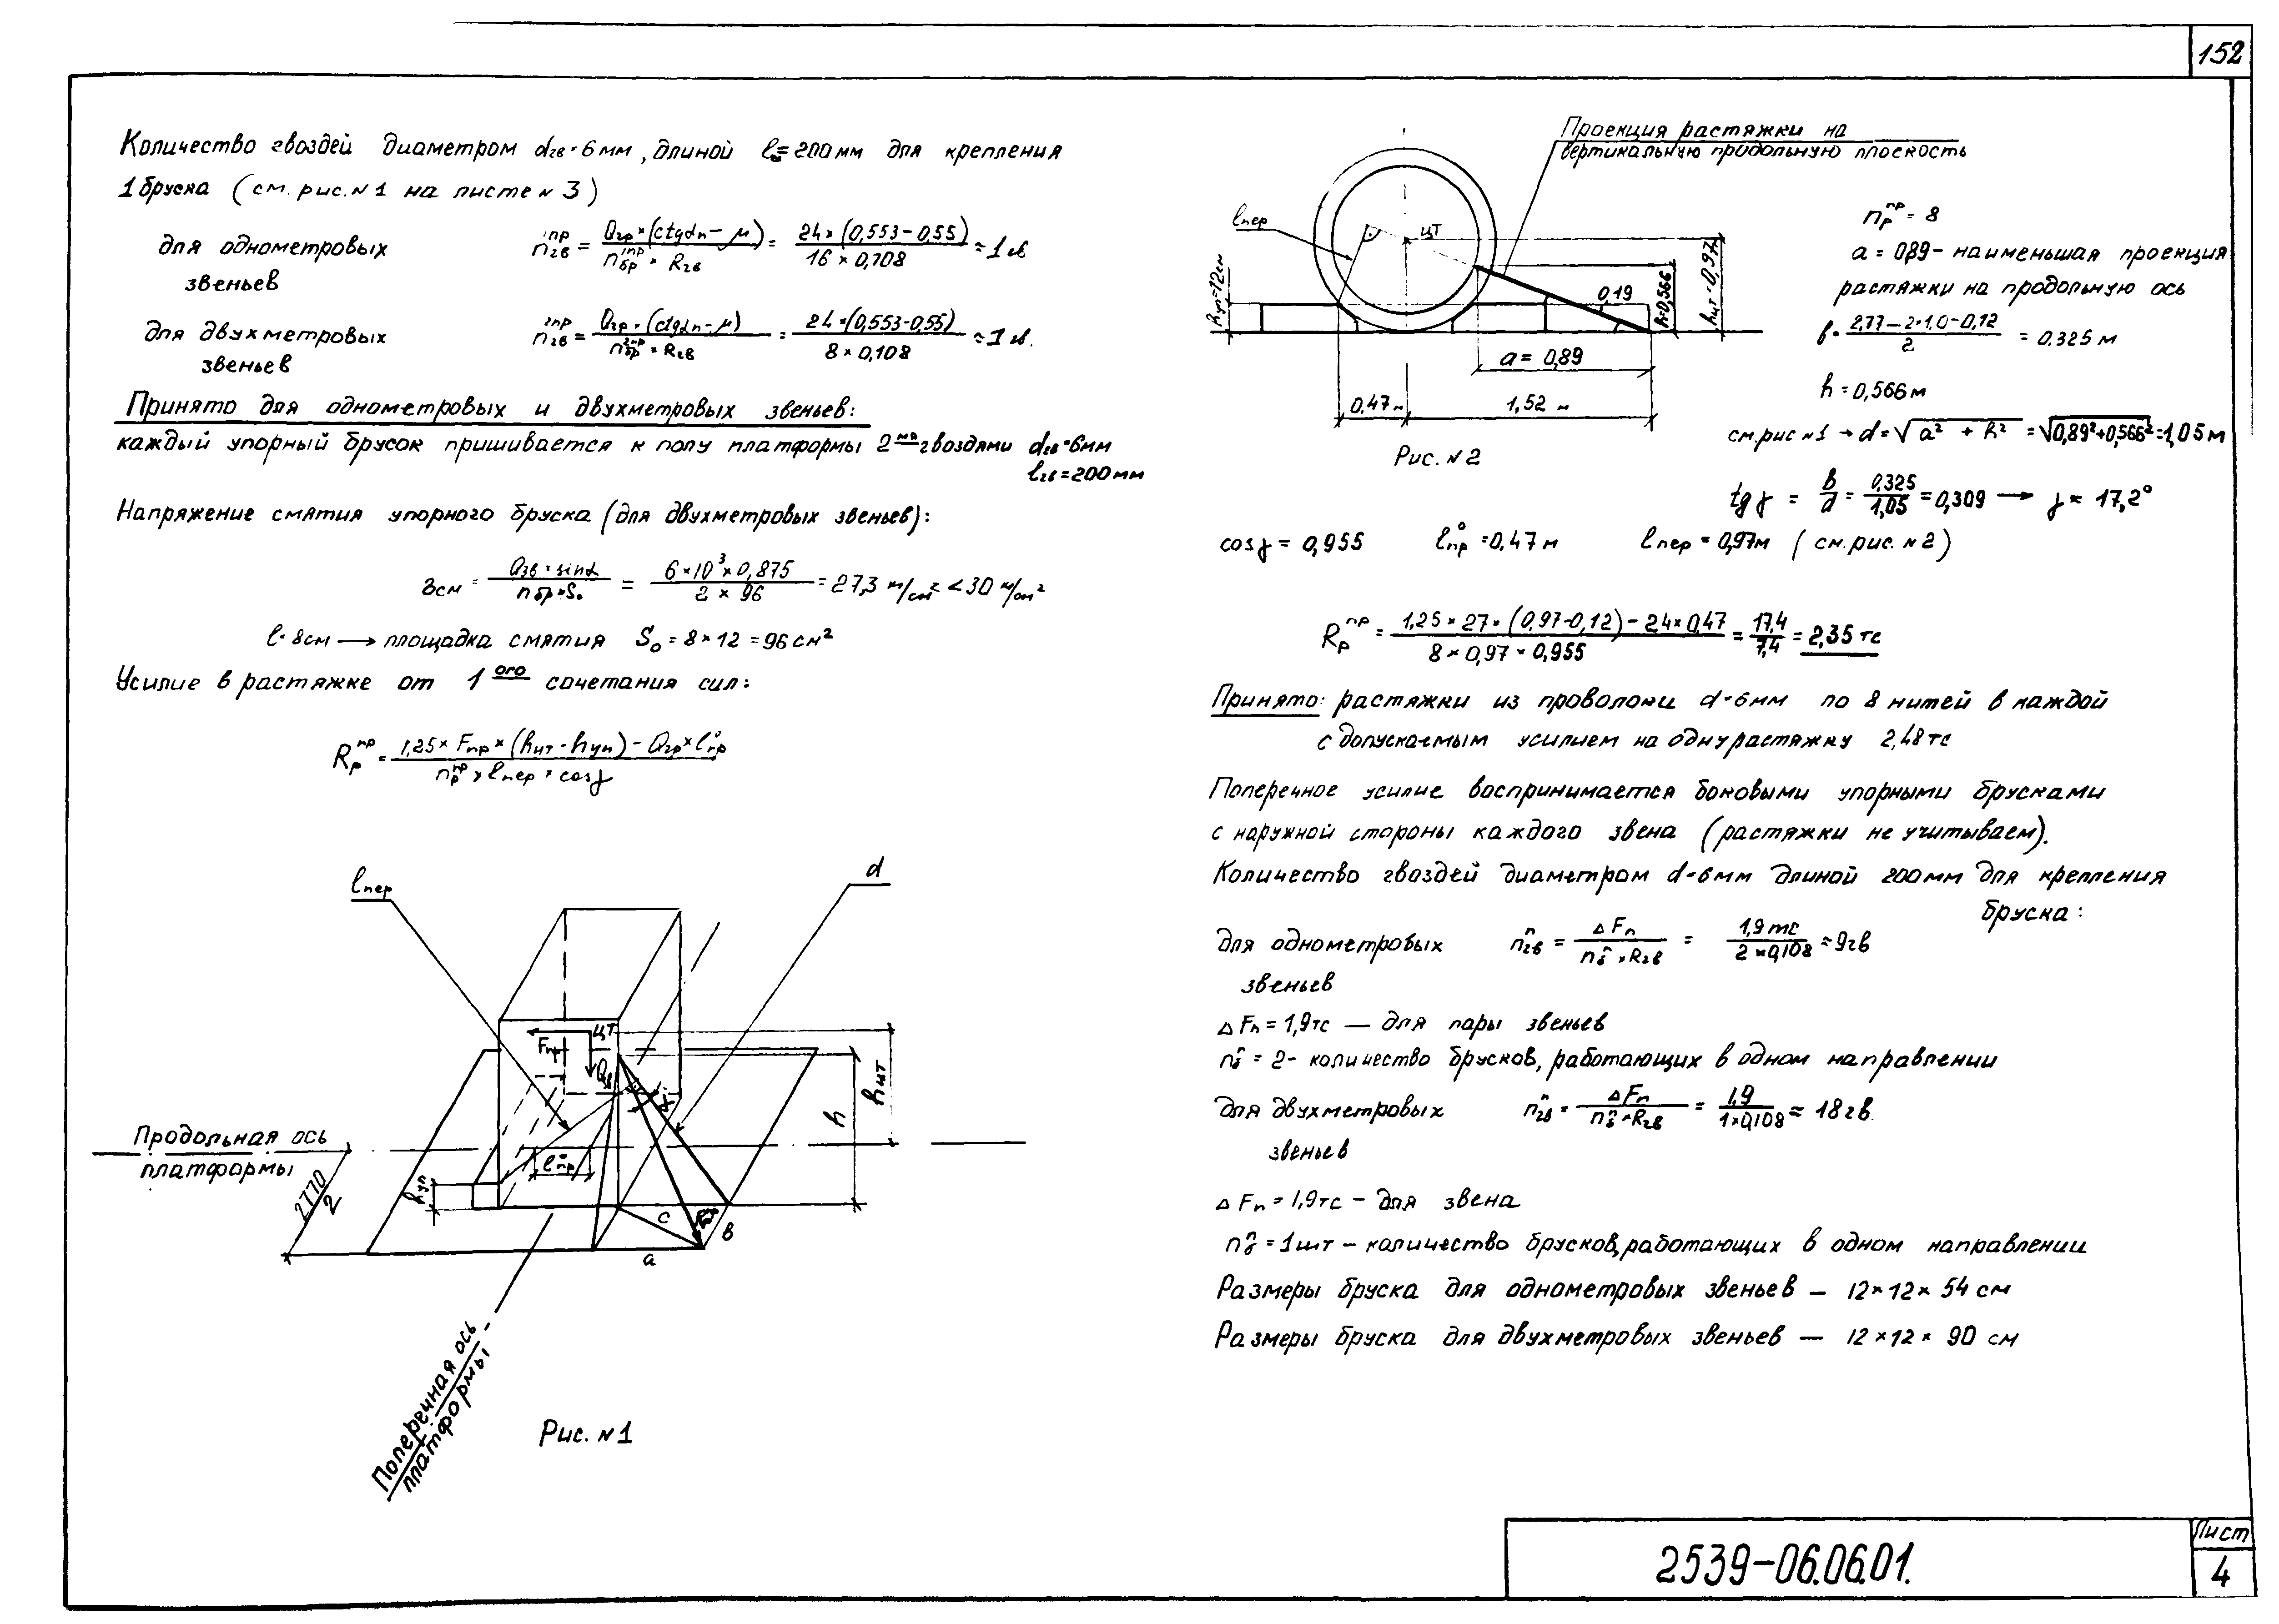 152
Количество гвоздей диаметром dгв=6мм, длиной lг=200мм для крепления
1 бруска (см. рис. №1 на листе №3)
для однометровых звеньев nгв^1пр = Qгр×(ctgαп−μ) / nбр^1пр × Rгв = 24×(0,553−0,55) / 16×0,108 ≈ 1гв
для двухметровых звеньев nгв^2пр = Qгр×(ctgαп−μ) / nбр^2пр × Rгв = 24×(0,553−0,55) / 8×0,108 ≈ 1гв.
Принято для однометровых и двухметровых звеньев:
каждый упорный брусок пришивается к полу платформы 2мя гвоздями dгв=6мм
lгв=200мм
Напряжение смятия упорного бруска (для двухметровых звеньев):
Qзв×sinα / nбр×S₀ = 6×10³×0,875 / 2×96 = 27,3 кг/см² < 30 кг/см²
l=8см → площадка смятия S₀=8×12=96см²
Усилие в растяжке от 1ого сочетания сил:
Rр^пр = 1,25×Fпр×(hцт−hуп)−Qгр×l°пр / nр^пр×lпер×cosγ
lпер
d
ЦТ
Fпр
hцт
h
γ
Продольная ось
платформы
2770/2
hуп
l°пр
c
в
a
Поперечная ось
платформы
Рис. №1
Проекция растяжки на
вертикальную продольную плоскость
lпер
ЦТ
hуп=12см
0,19
h=0,566
hцт=0,97
a=0,89
0,47м
1,52 м
Рис. №2
nр^пр=8
a=0,89− наименьшая проекция
растяжки на продольную ось
в= 2,77−2×1,0−0,12 / 2 = 0.325м
h=0,566м
см.рис №1 → d=√a²+h² = √0,89²+0,566² = 1,05м
tgγ = в/d = 0,325/1,05 = 0,309 → γ= 17,2°
cosγ = 0,955 l°пр=0,47м lпер=0,97м (см.рис. №2)
Rр^пр = 1,25×27×(0,97−0,12)−24×0,47 / 8×0,97×0,955 = 17,4/7,4 = 2,35тс
Принято: растяжки из проволоки d=6мм по 8 нитей в каждой
с допускаемым усилием на одну растяжку 2,48тс
Поперечное усилие воспринимается боковыми упорными брусками
с наружной стороны каждого звена (растяжки не учитываем).
Количество гвоздей диаметром d=6мм длиной 200мм для крепления
бруска:
для однометровых звеньев nгв^п = ΔFп / nб^п×Rгв = 1,9тс / 2×0,108 ≈ 9гв
ΔFп=1,9тс — для пары звеньев
nб^п=2- количество брусков, работающих в одном направлении
для двухметровых звеньев nгв^п = ΔFп / nб^п×Rгв = 1,9 / 1×0,108 ≈ 18гв.
ΔFп=1,9тс − для звена
nб^п=1шт − количество брусков, работающих в одном направлении
Размеры бруска для однометровых звеньев — 12×12×54см
Размеры бруска для двухметровых звеньев — 12×12×90 см
2539-06.06.01.
Лист
4